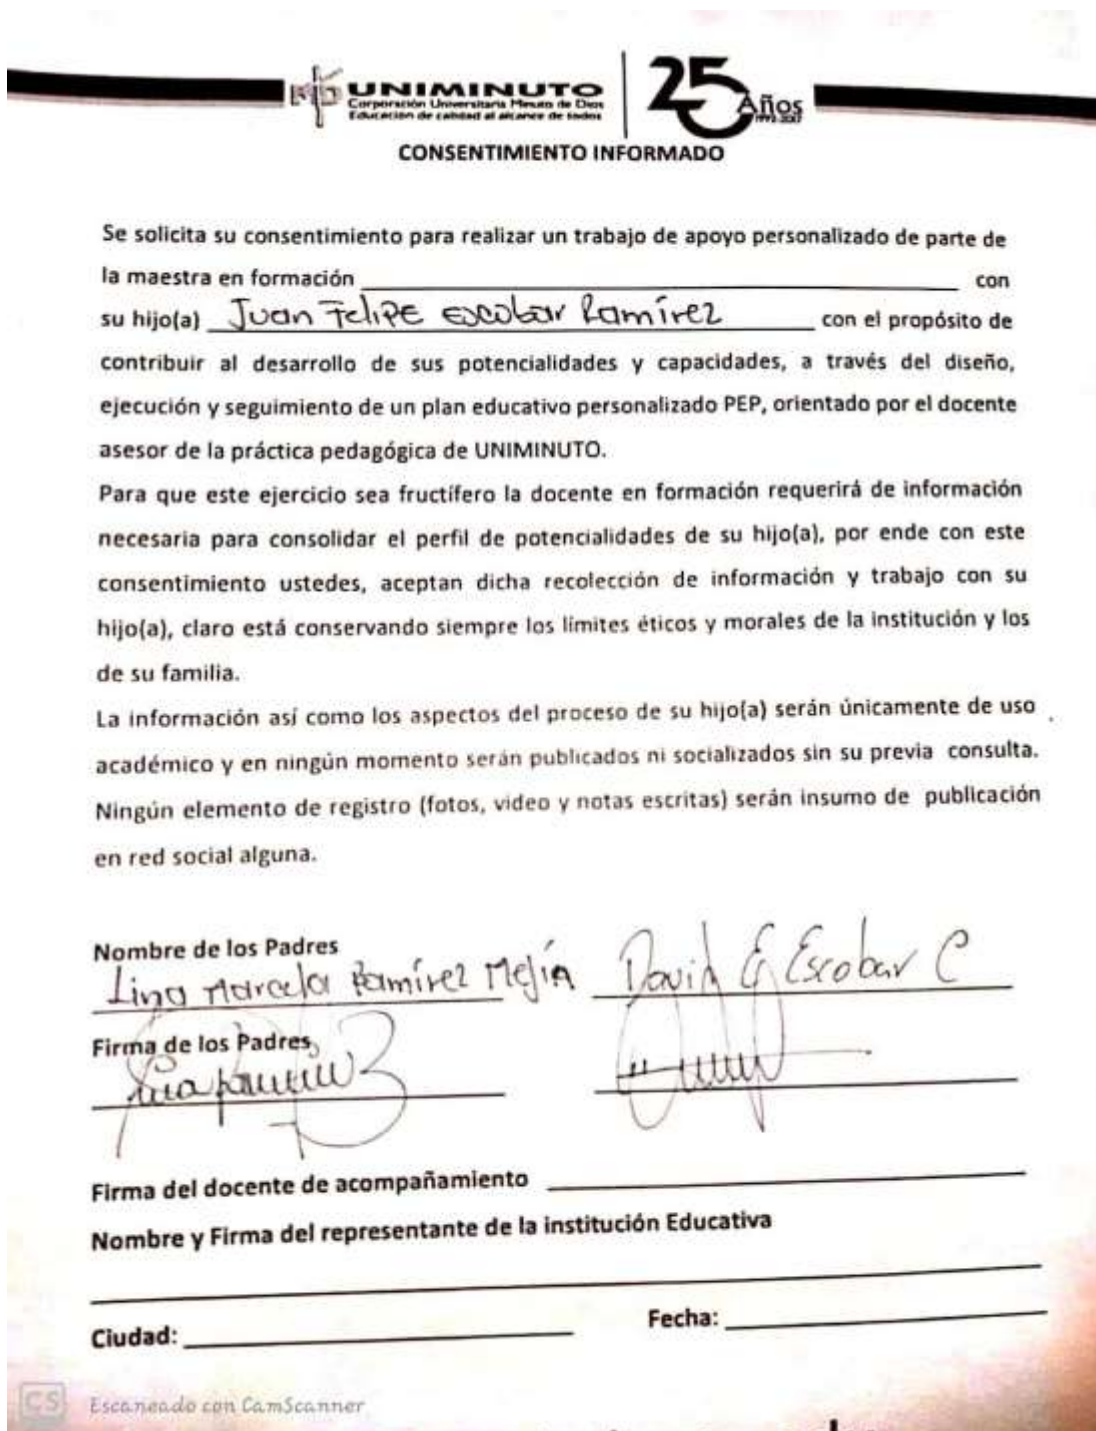 UNIMINUTO
Corporación Universitaria Minuto de Dios
Educación de calidad al alcance de todos
25 Años
1992-2017
CONSENTIMIENTO INFORMADO
Se solicita su consentimiento para realizar un trabajo de apoyo personalizado de parte de
la maestra en formación con
su hijo(a) Juan Felipe Escobar Ramírez con el propósito de
contribuir al desarrollo de sus potencialidades y capacidades, a través del diseño,
ejecución y seguimiento de un plan educativo personalizado PEP, orientado por el docente
asesor de la práctica pedagógica de UNIMINUTO.
Para que este ejercicio sea fructífero la docente en formación requerirá de información
necesaria para consolidar el perfil de potencialidades de su hijo(a), por ende con este
consentimiento ustedes, aceptan dicha recolección de información y trabajo con su
hijo(a), claro está conservando siempre los límites éticos y morales de la institución y los
de su familia.
La información así como los aspectos del proceso de su hijo(a) serán únicamente de uso
académico y en ningún momento serán publicados ni socializados sin su previa consulta.
Ningún elemento de registro (fotos, video y notas escritas) serán insumo de publicación
en red social alguna.
Nombre de los Padres
Lina Marcela Ramírez Mejía David E Escobar C
Firma de los Padres
Firma del docente de acompañamiento
Nombre y Firma del representante de la institución Educativa
Ciudad: Fecha:
CS Escaneado con CamScanner